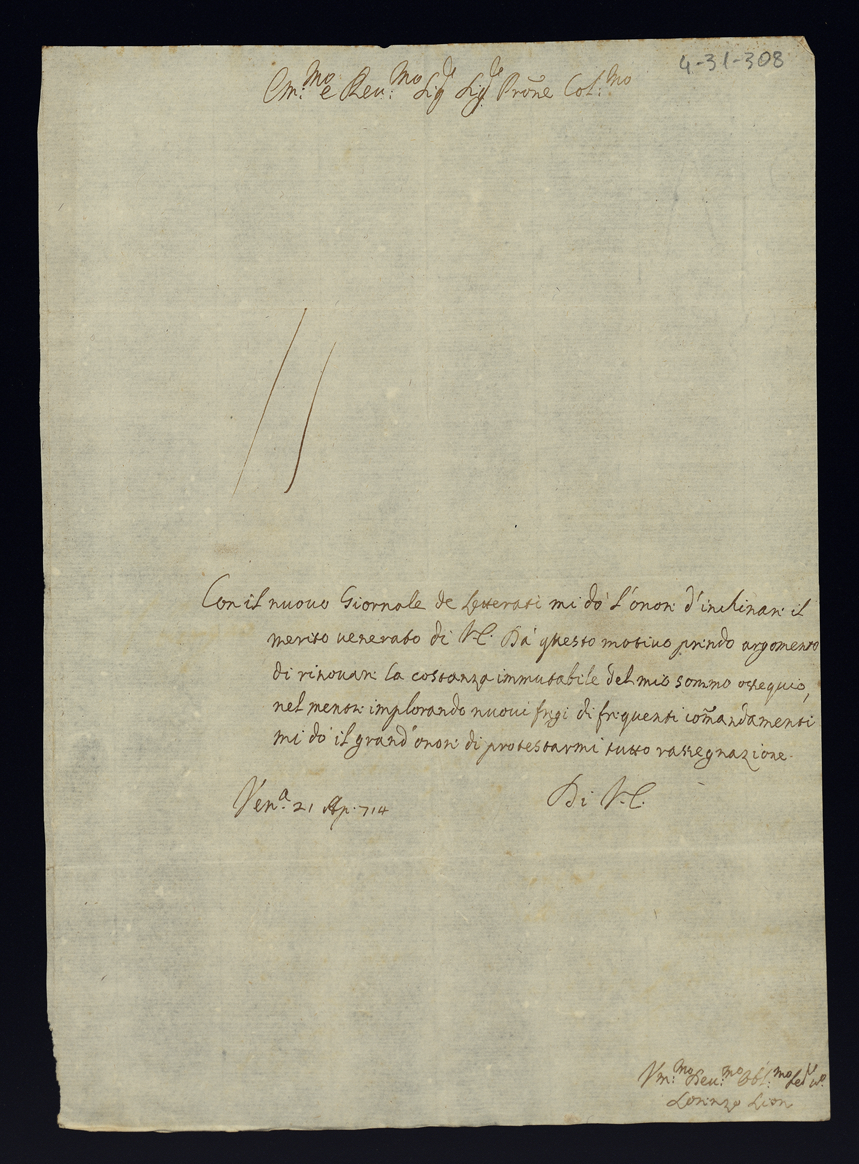 4-31-308
Em.mo e Reu.mo Sig.re Sig.re Prõne Col.mo
Con il nuouo Giornale de Letterati mi dò l'onor d'inclinar il
merito venerato di V.E. Da questo motiuo prendo argomento
di rinouar la costanza immutabile del mio sommo ossequio,
nel mentre implorando nuoui fregi di frequenti com̃andamenti
mi dò il grand'onor di protestarmi tutto rassegnazione.
Ven.a 21 Ap. 714
Di V.E.
Vm.mo Deu.mo Obl.mo
Lorenzo Lion